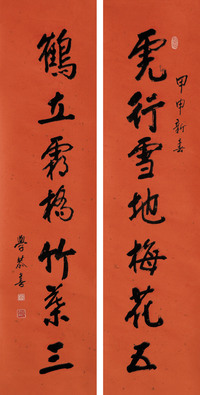 甲申新春
虎行雪地梅花五
鶴立霜橋竹葉三